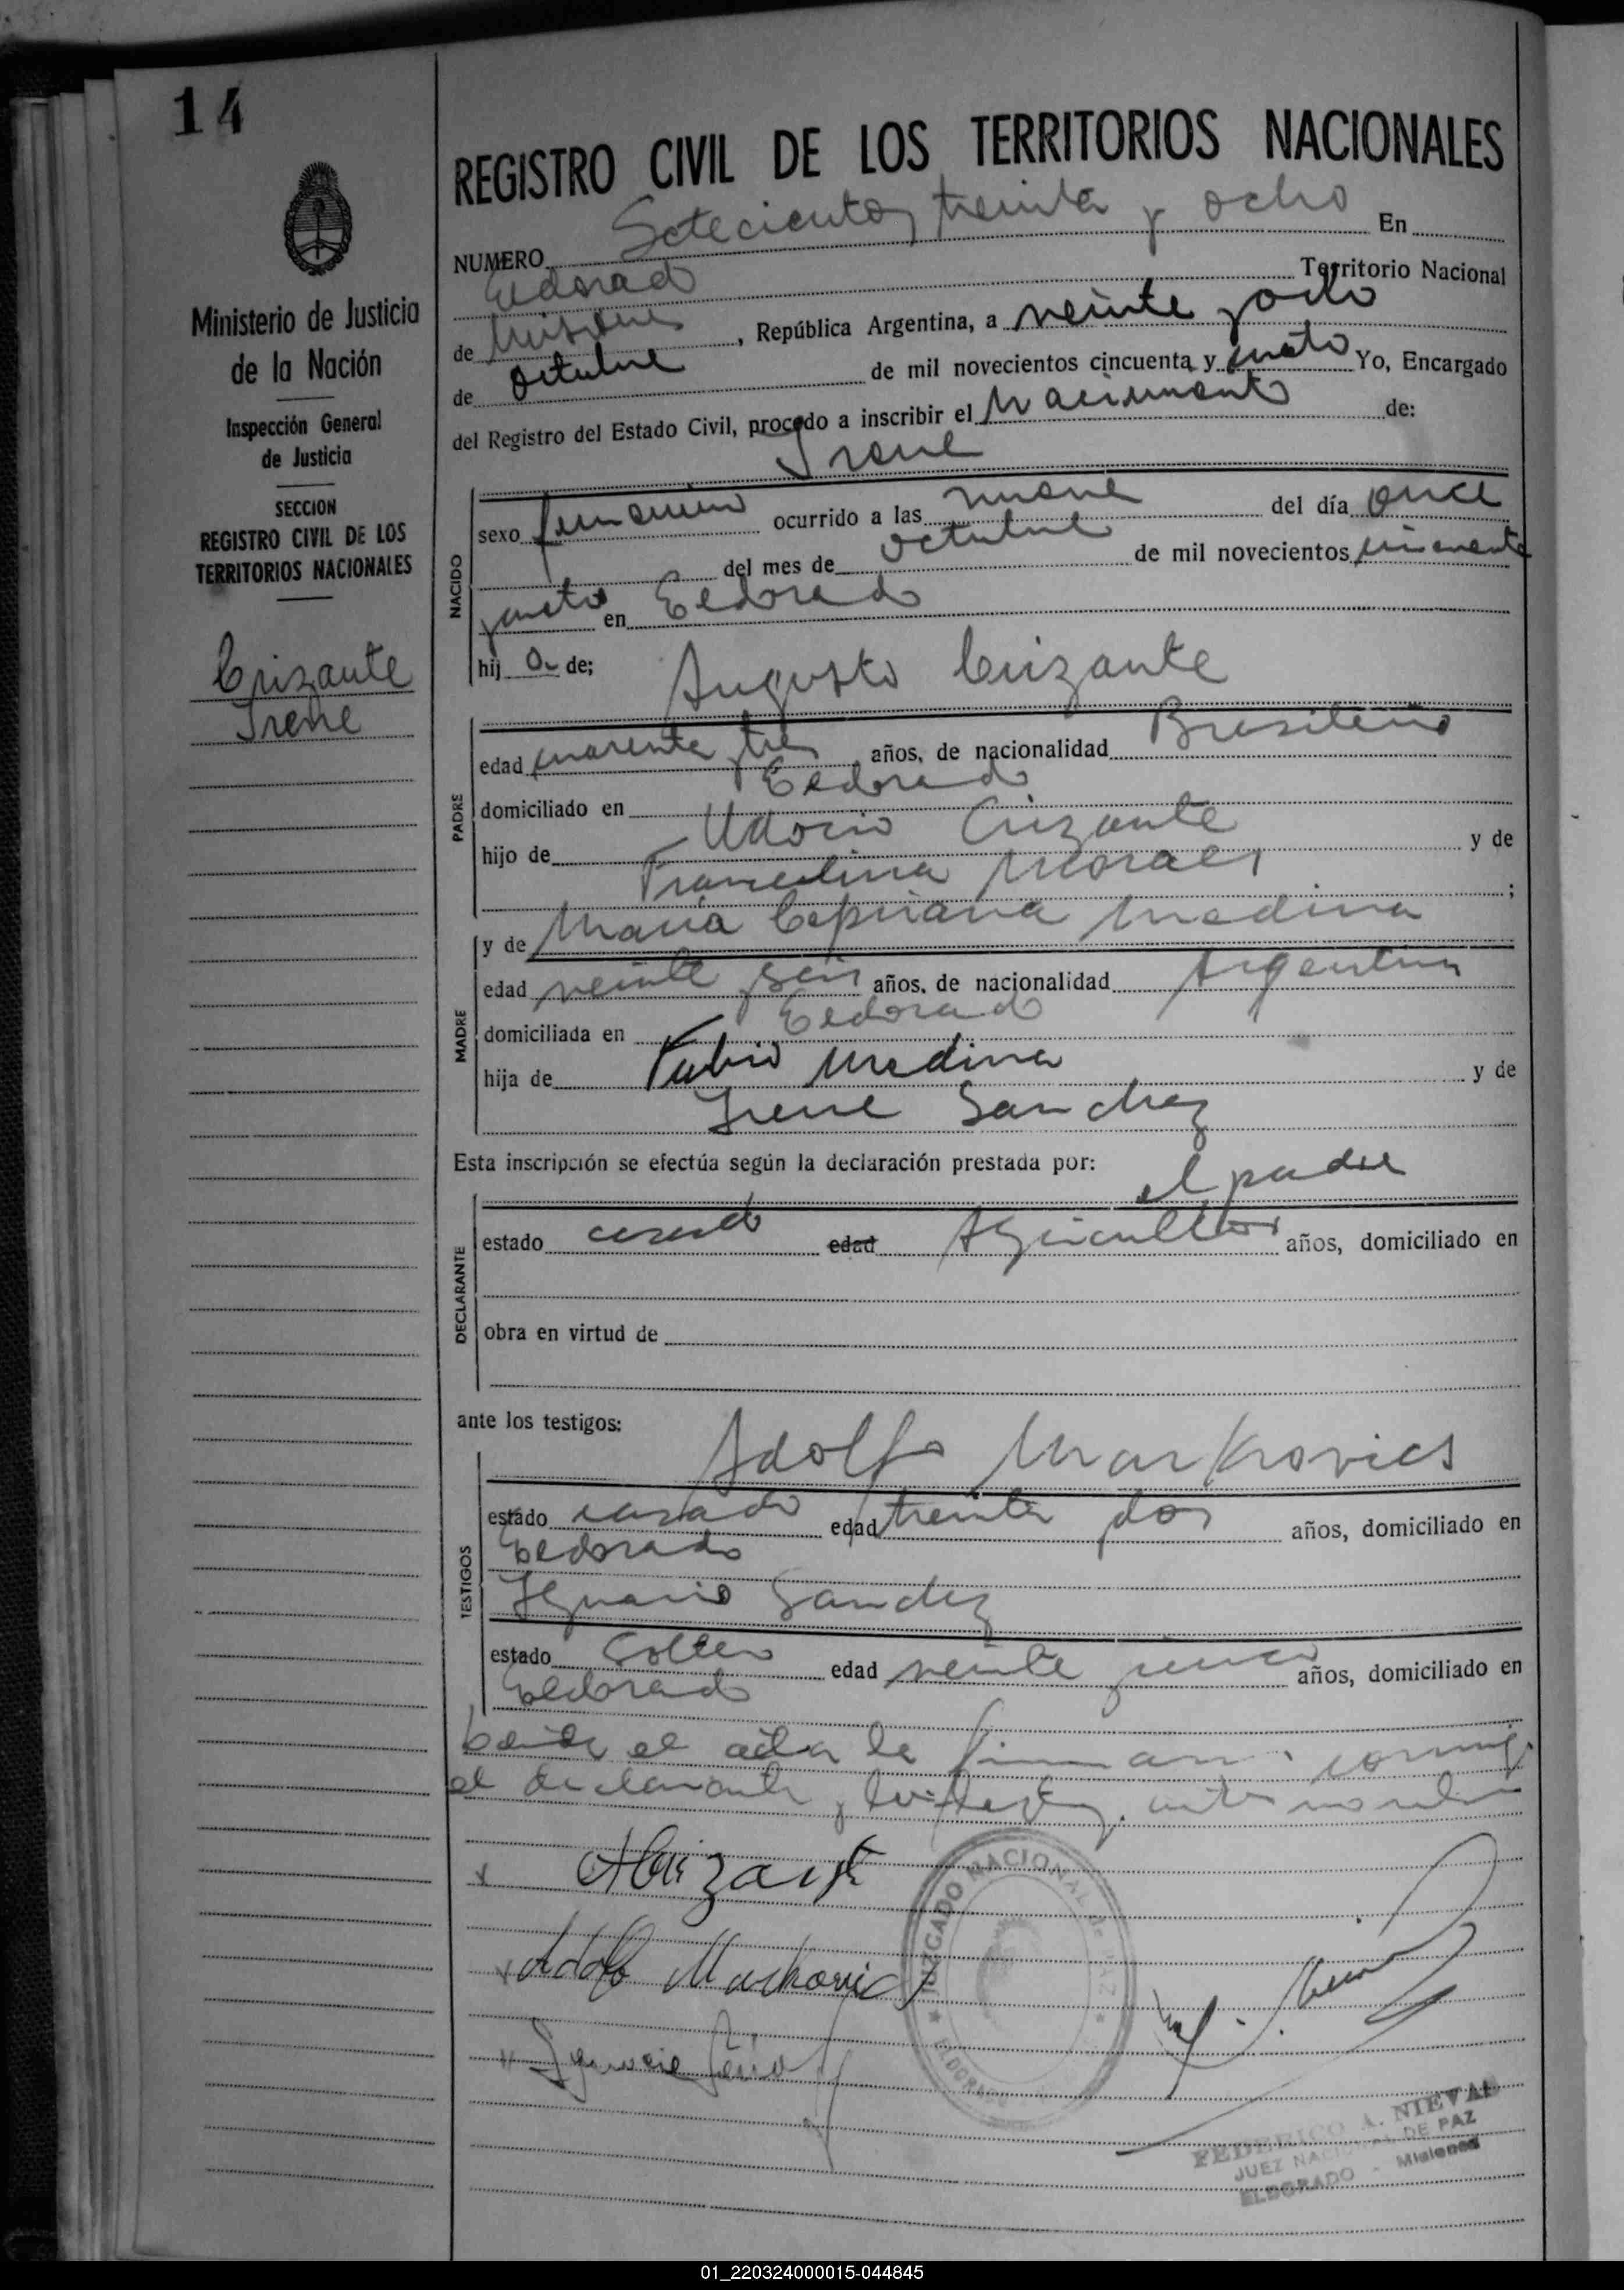 14
REGISTRO CIVIL DE LOS TERRITORIOS NACIONALES
NUMERO Setecientos treinta y ocho En
Eldorado Territorio Nacional
de Misiones, República Argentina, a veinte y ocho
de octubre de mil novecientos cincuenta y cuatro Yo, Encargado
del Registro del Estado Civil, procedo a inscribir el Nacimiento de:
Irene
Ministerio de Justicia
de la Nación
Inspección General
de Justicia
SECCION
REGISTRO CIVIL DE LOS
TERRITORIOS NACIONALES
Crizante
Irene
NACIDO
sexo femenino ocurrido a las nueve del día once
del mes de octubre de mil novecientos cincuenta
y cuatro en Eldorado
hij a de;
Augusto Crizante
PADRE
edad cuarenta tres años, de nacionalidad Brasileño
domiciliado en Eldorado
hijo de Crizante y de
Francelina Moraes ;
y de María Cipriana Medina
MADRE
edad veinte seis años, de nacionalidad Argentina
domiciliada en Eldorado
hija de Fabio Medina y de
Irene Sanchez
Esta inscripción se efectúa según la declaración prestada por:
el padre
DECLARANTE
estado casado edad Agricultor años, domiciliado en
obra en virtud de
ante los testigos:
Adolfo Markovics
TESTIGOS
estado casado edad treinta dos años, domiciliado en
Eldorado
Ignacio Sanchez
estado Soltero edad veinte cinco años, domiciliado en
Eldorado
el acta la firman conmigo
el declarante y los testigos
ACrizante
Adolfo Markovics
Ignacio
JUZGADO NACIONAL DE PAZ
★ ELDORADO ★
FEDERICO A. NIEVAS
JUEZ NACIONAL DE PAZ
ELDORADO - Misiones
01_220324000015-044845